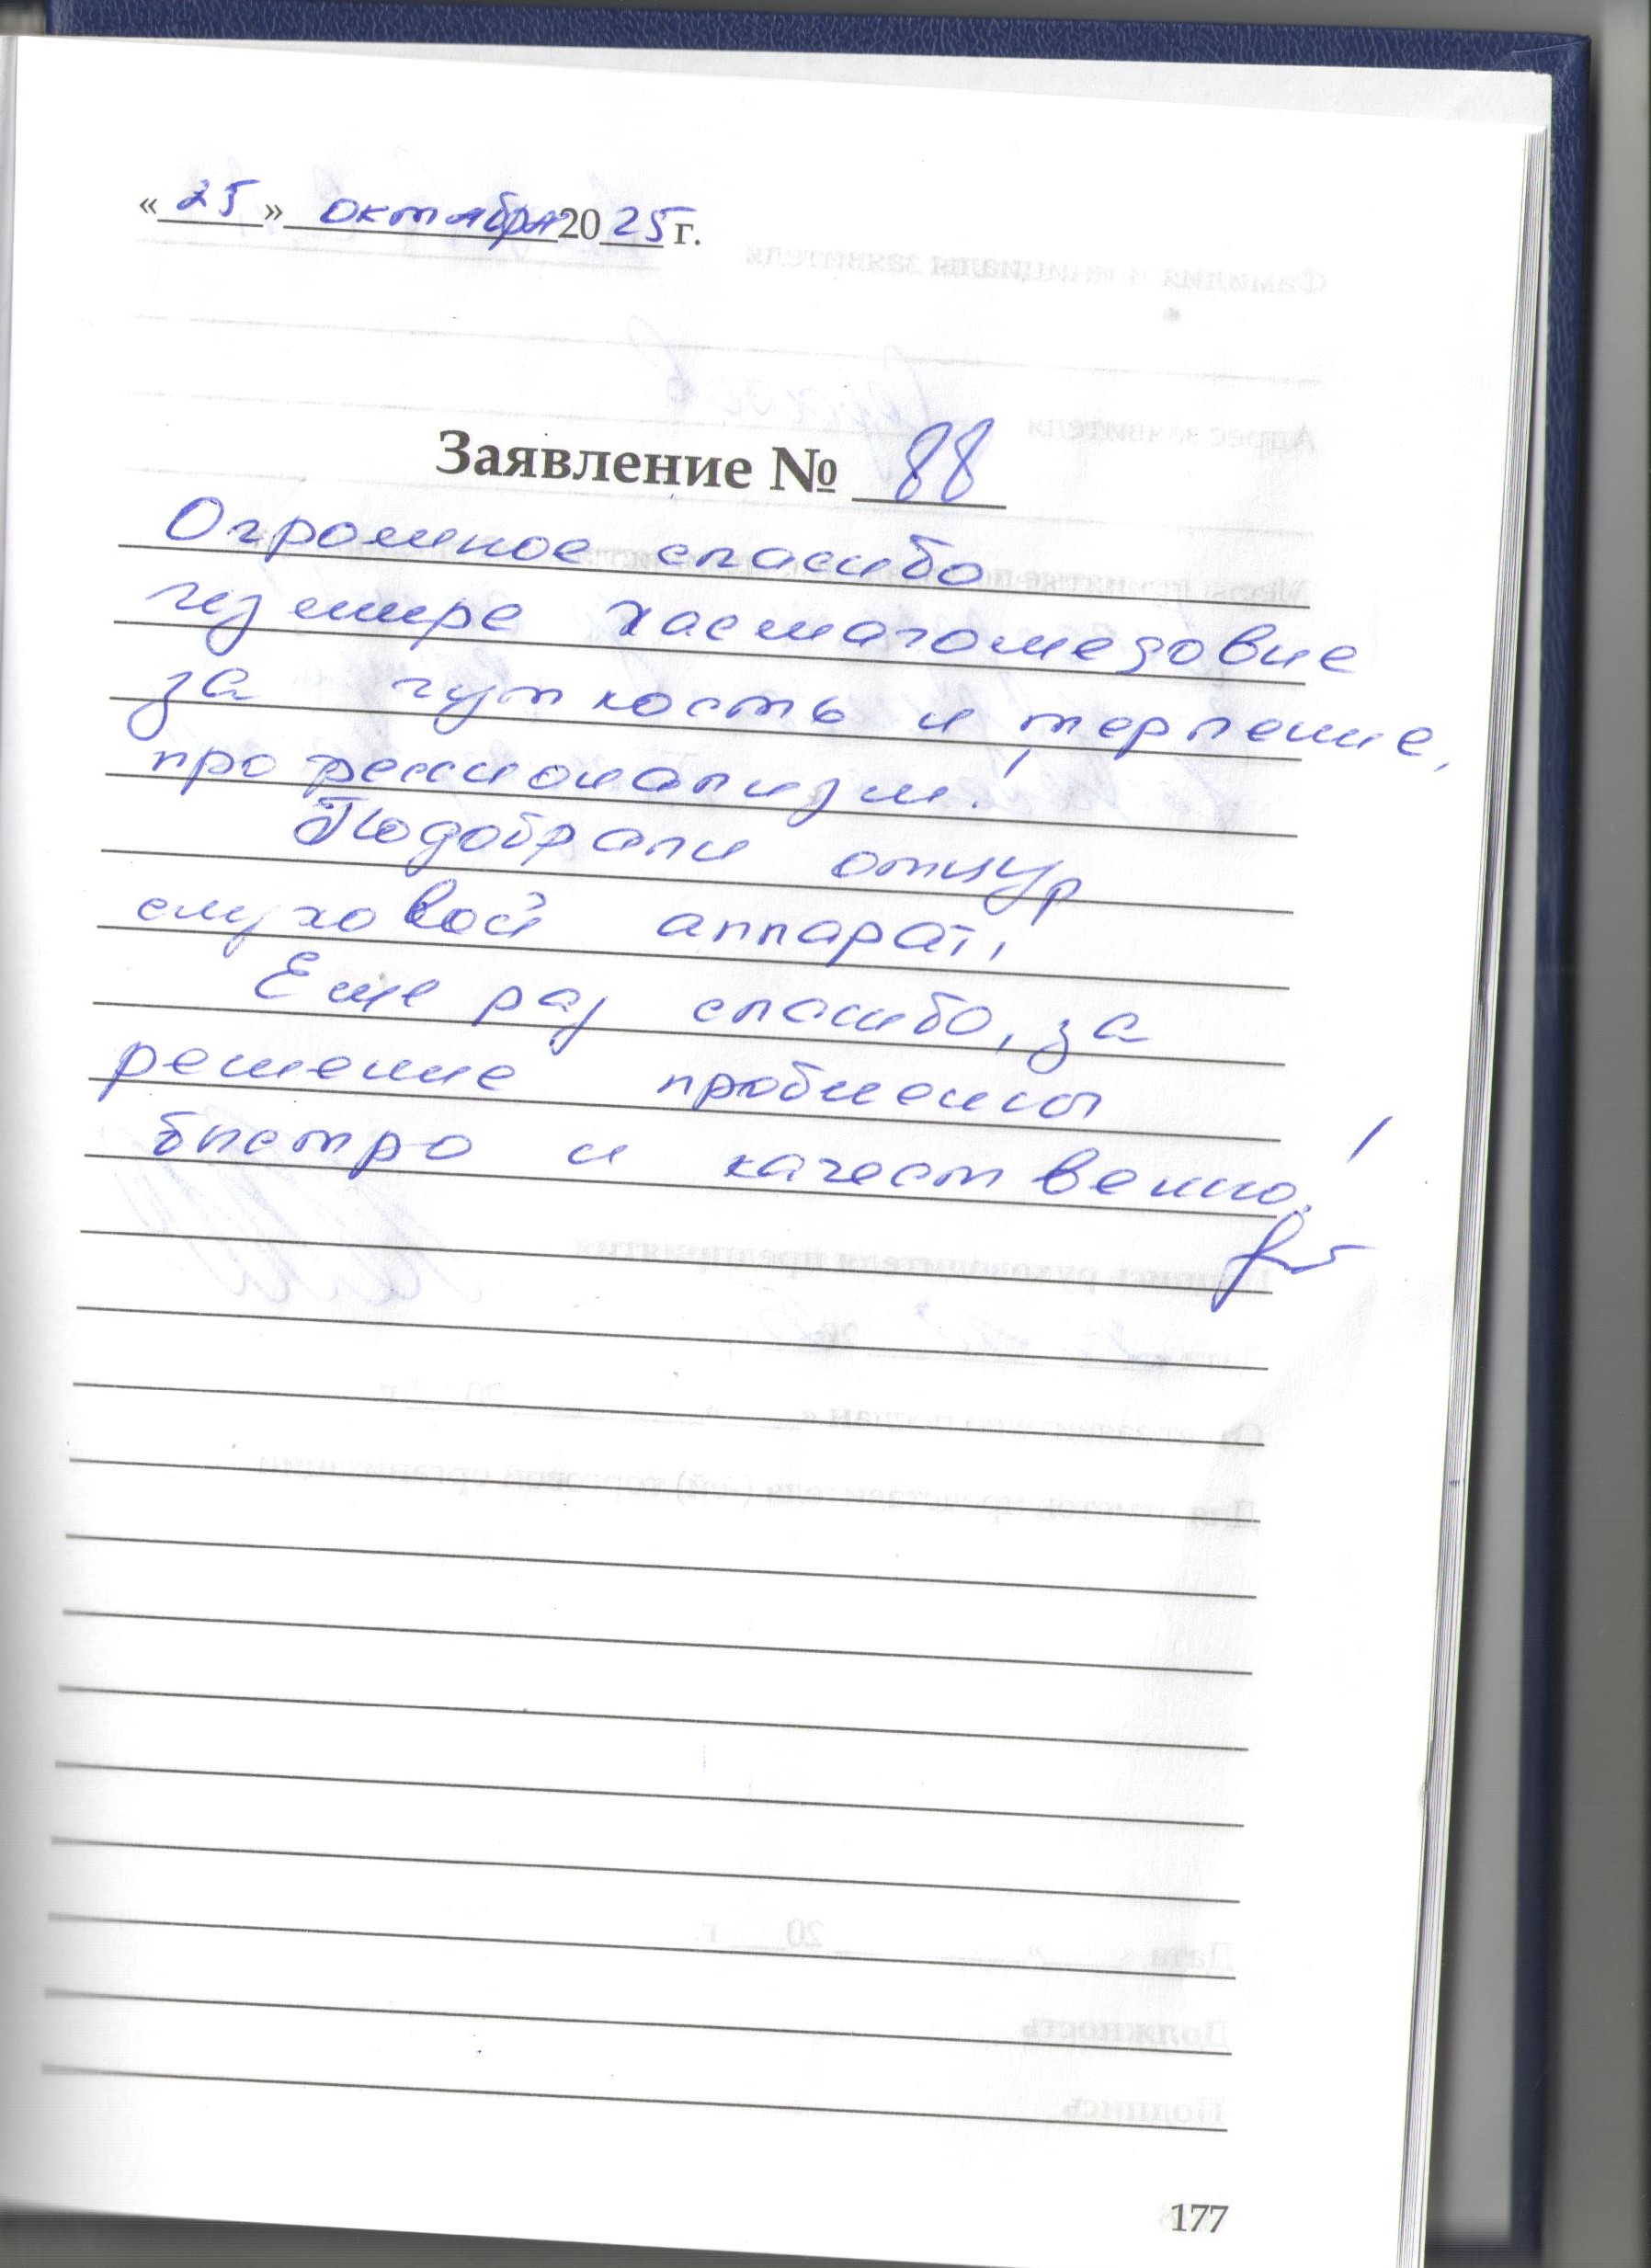 « 25 » октября 2025 г.
Заявление № 88
Огромное спасибо
Гузмире Хасмагомедовне
за чуткость и терпение,
профессионализм!
Подобрали отцу
слуховой аппарат,
Еще раз спасибо, за
решение проблемы
быстро и качественно!
177